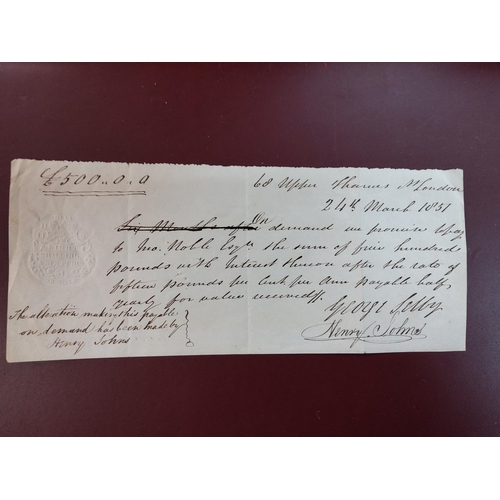 £500..0..0
68 Upper Thames St London
24th March 1851
Six Months after On demand we promise to pay
to Jno. Noble Esqre the sum of five hundred
pounds with Interest thereon after the rate of
fifteen pounds per Cent per Ann payable half
yearly for value received.
George Selby
Henry Johns
The alteration making this payable
on demand has been made by
Henry Johns